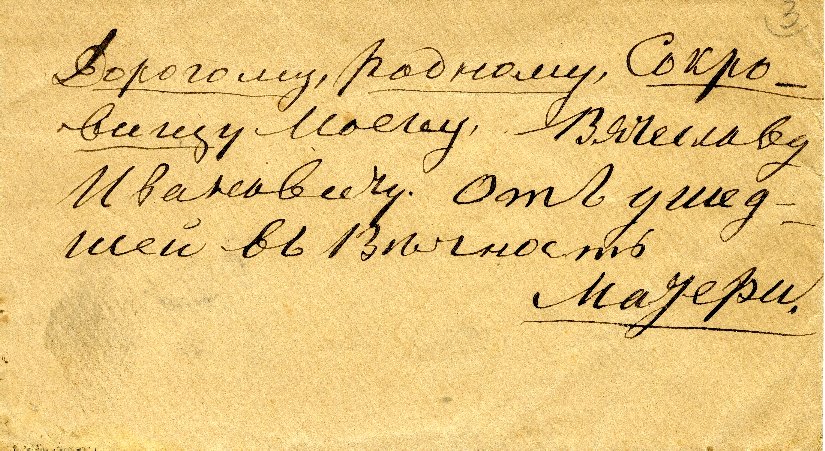 3
Дорогому, родному, Сокро-
вищу моему, Вячеславу
Ивановичу. Отъ ушед-
шей въ Вѣчность
Матери.